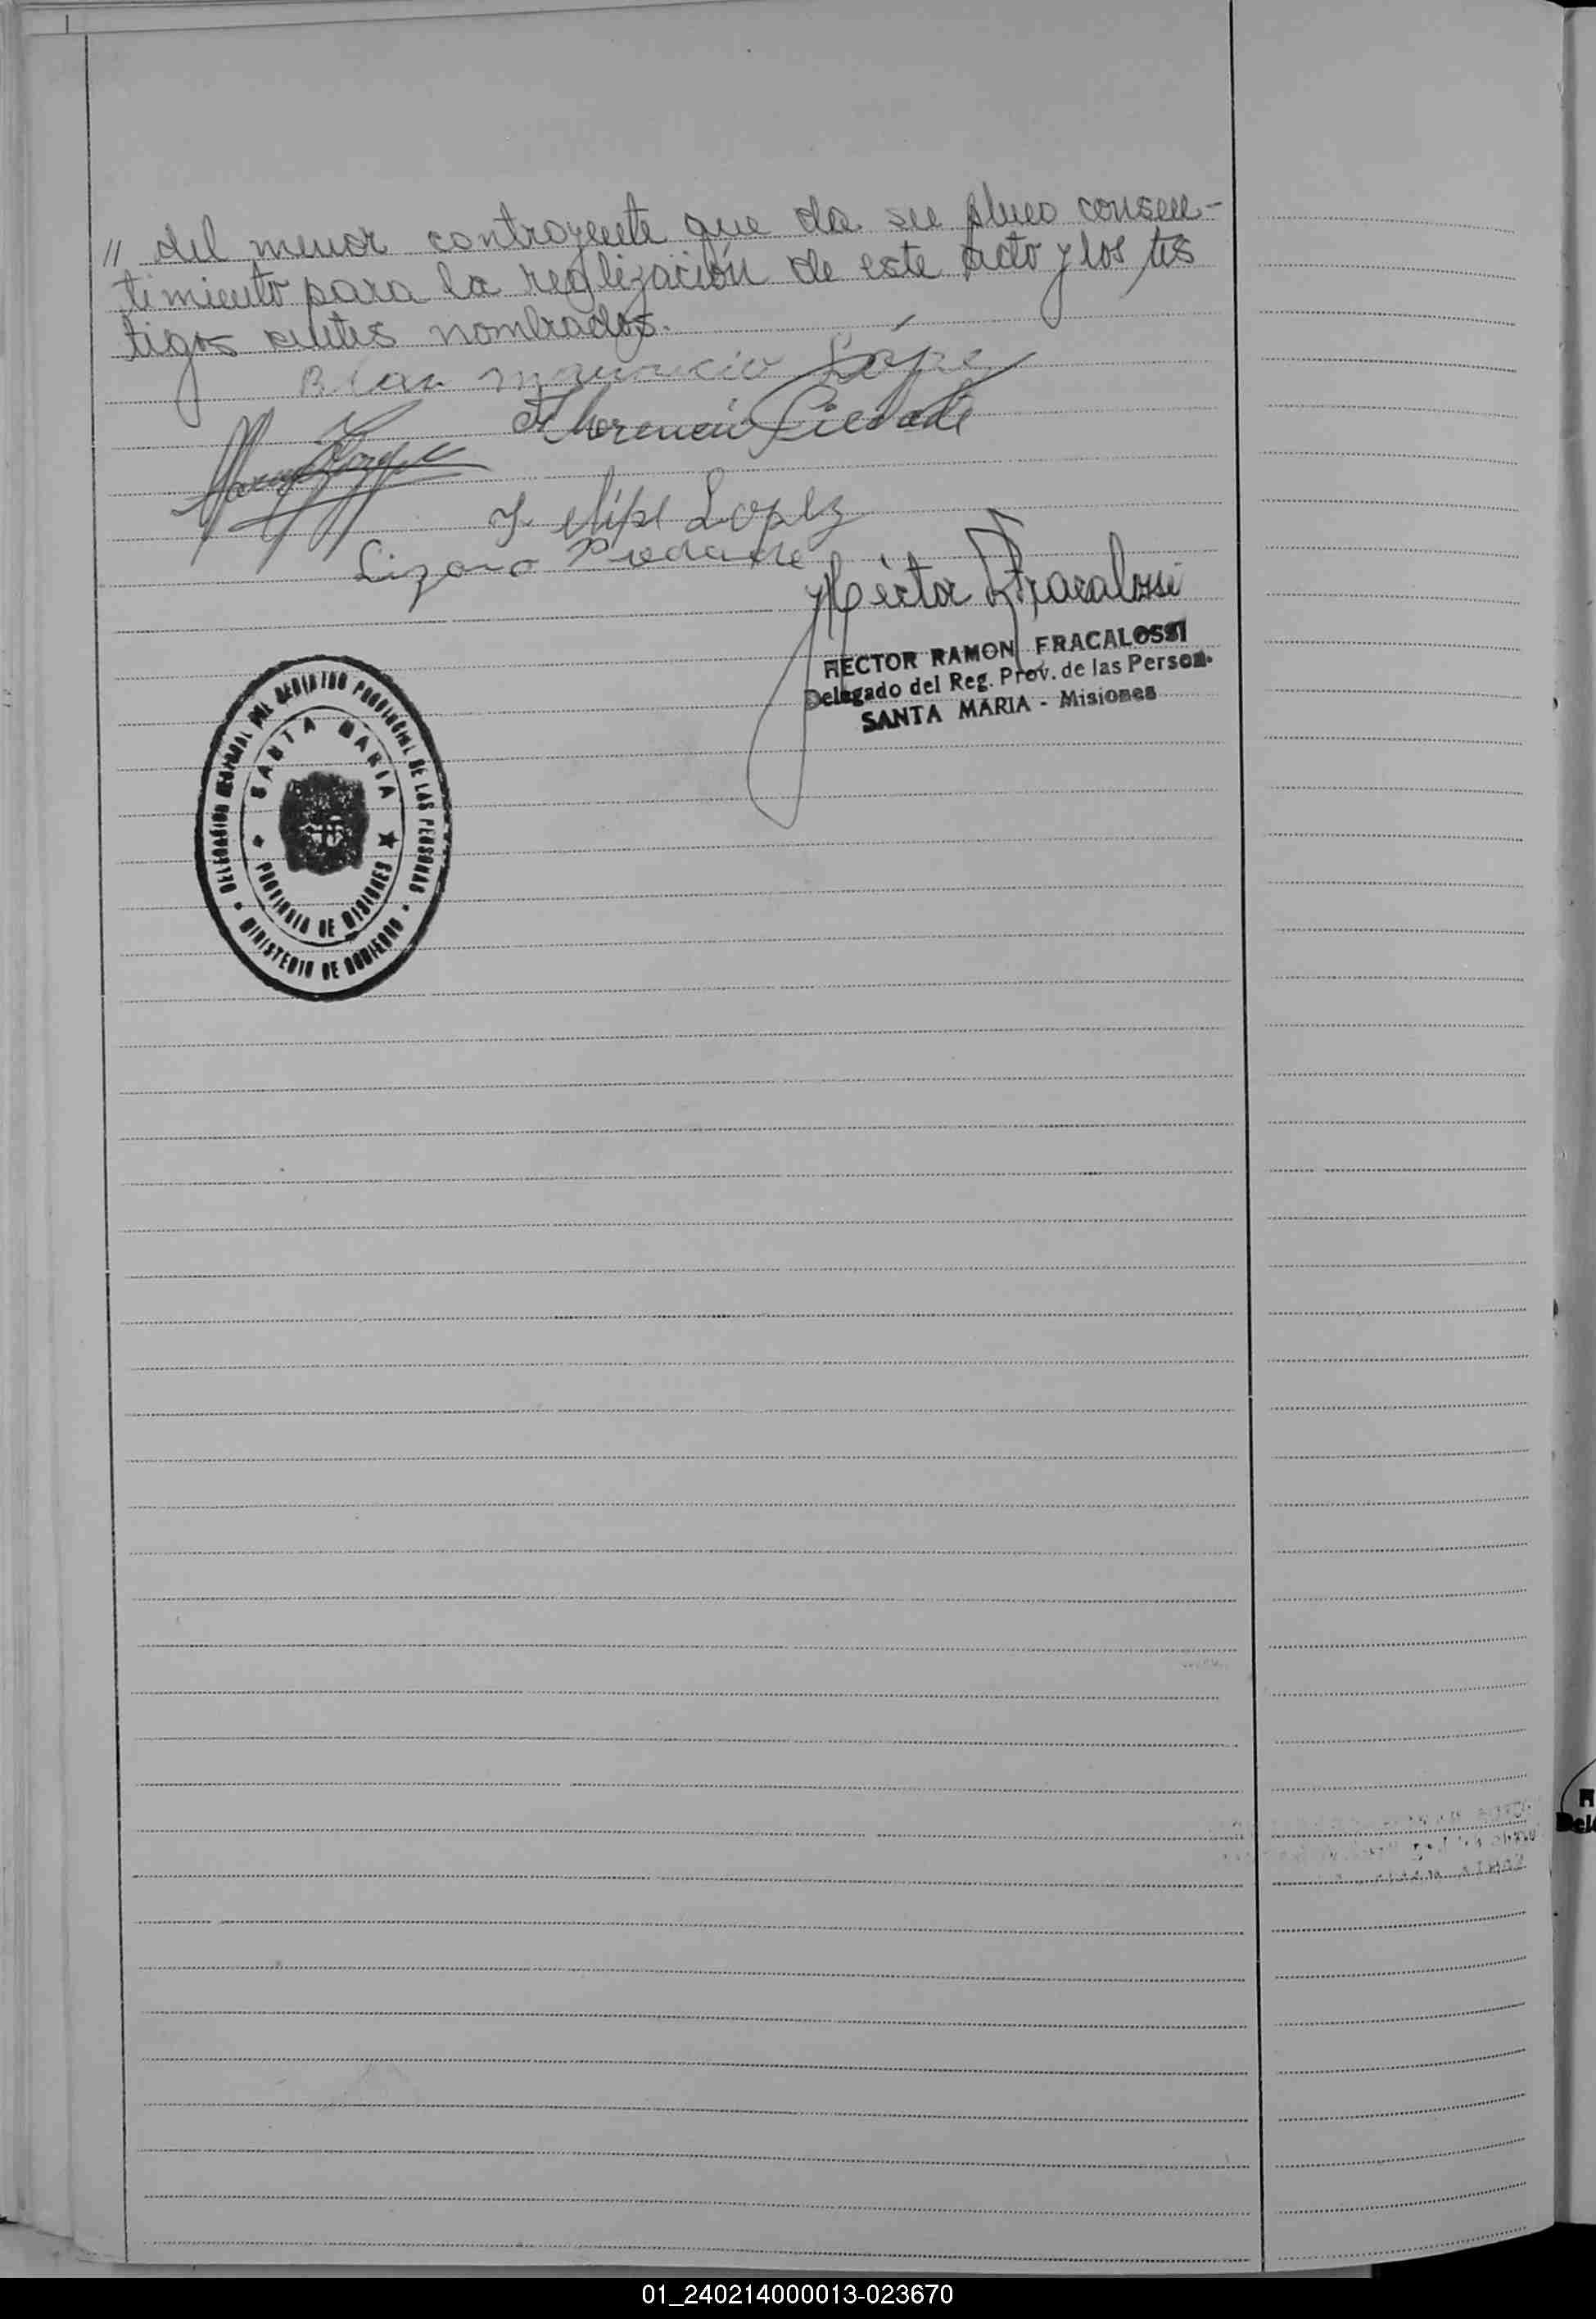 // del menor contrayente que da su pleno consen-
timiento para la realización de este acto y los tes
tigos antes nombrados.
Blas Mauricio López
Florencio Piedade
Felipe Lopez
Hector R Fracalossi
HECTOR RAMON FRACALOSSI
Delegado del Reg. Prov. de las Person.
SANTA MARIA - Misiones
DELEGACION REGIONAL DEL REGISTRO PROVINCIAL DE LAS PERSONAS
SANTA MARIA
PROVINCIA DE MISIONES
MINISTERIO DE GOBIERNO
Dele
01_240214000013-023670